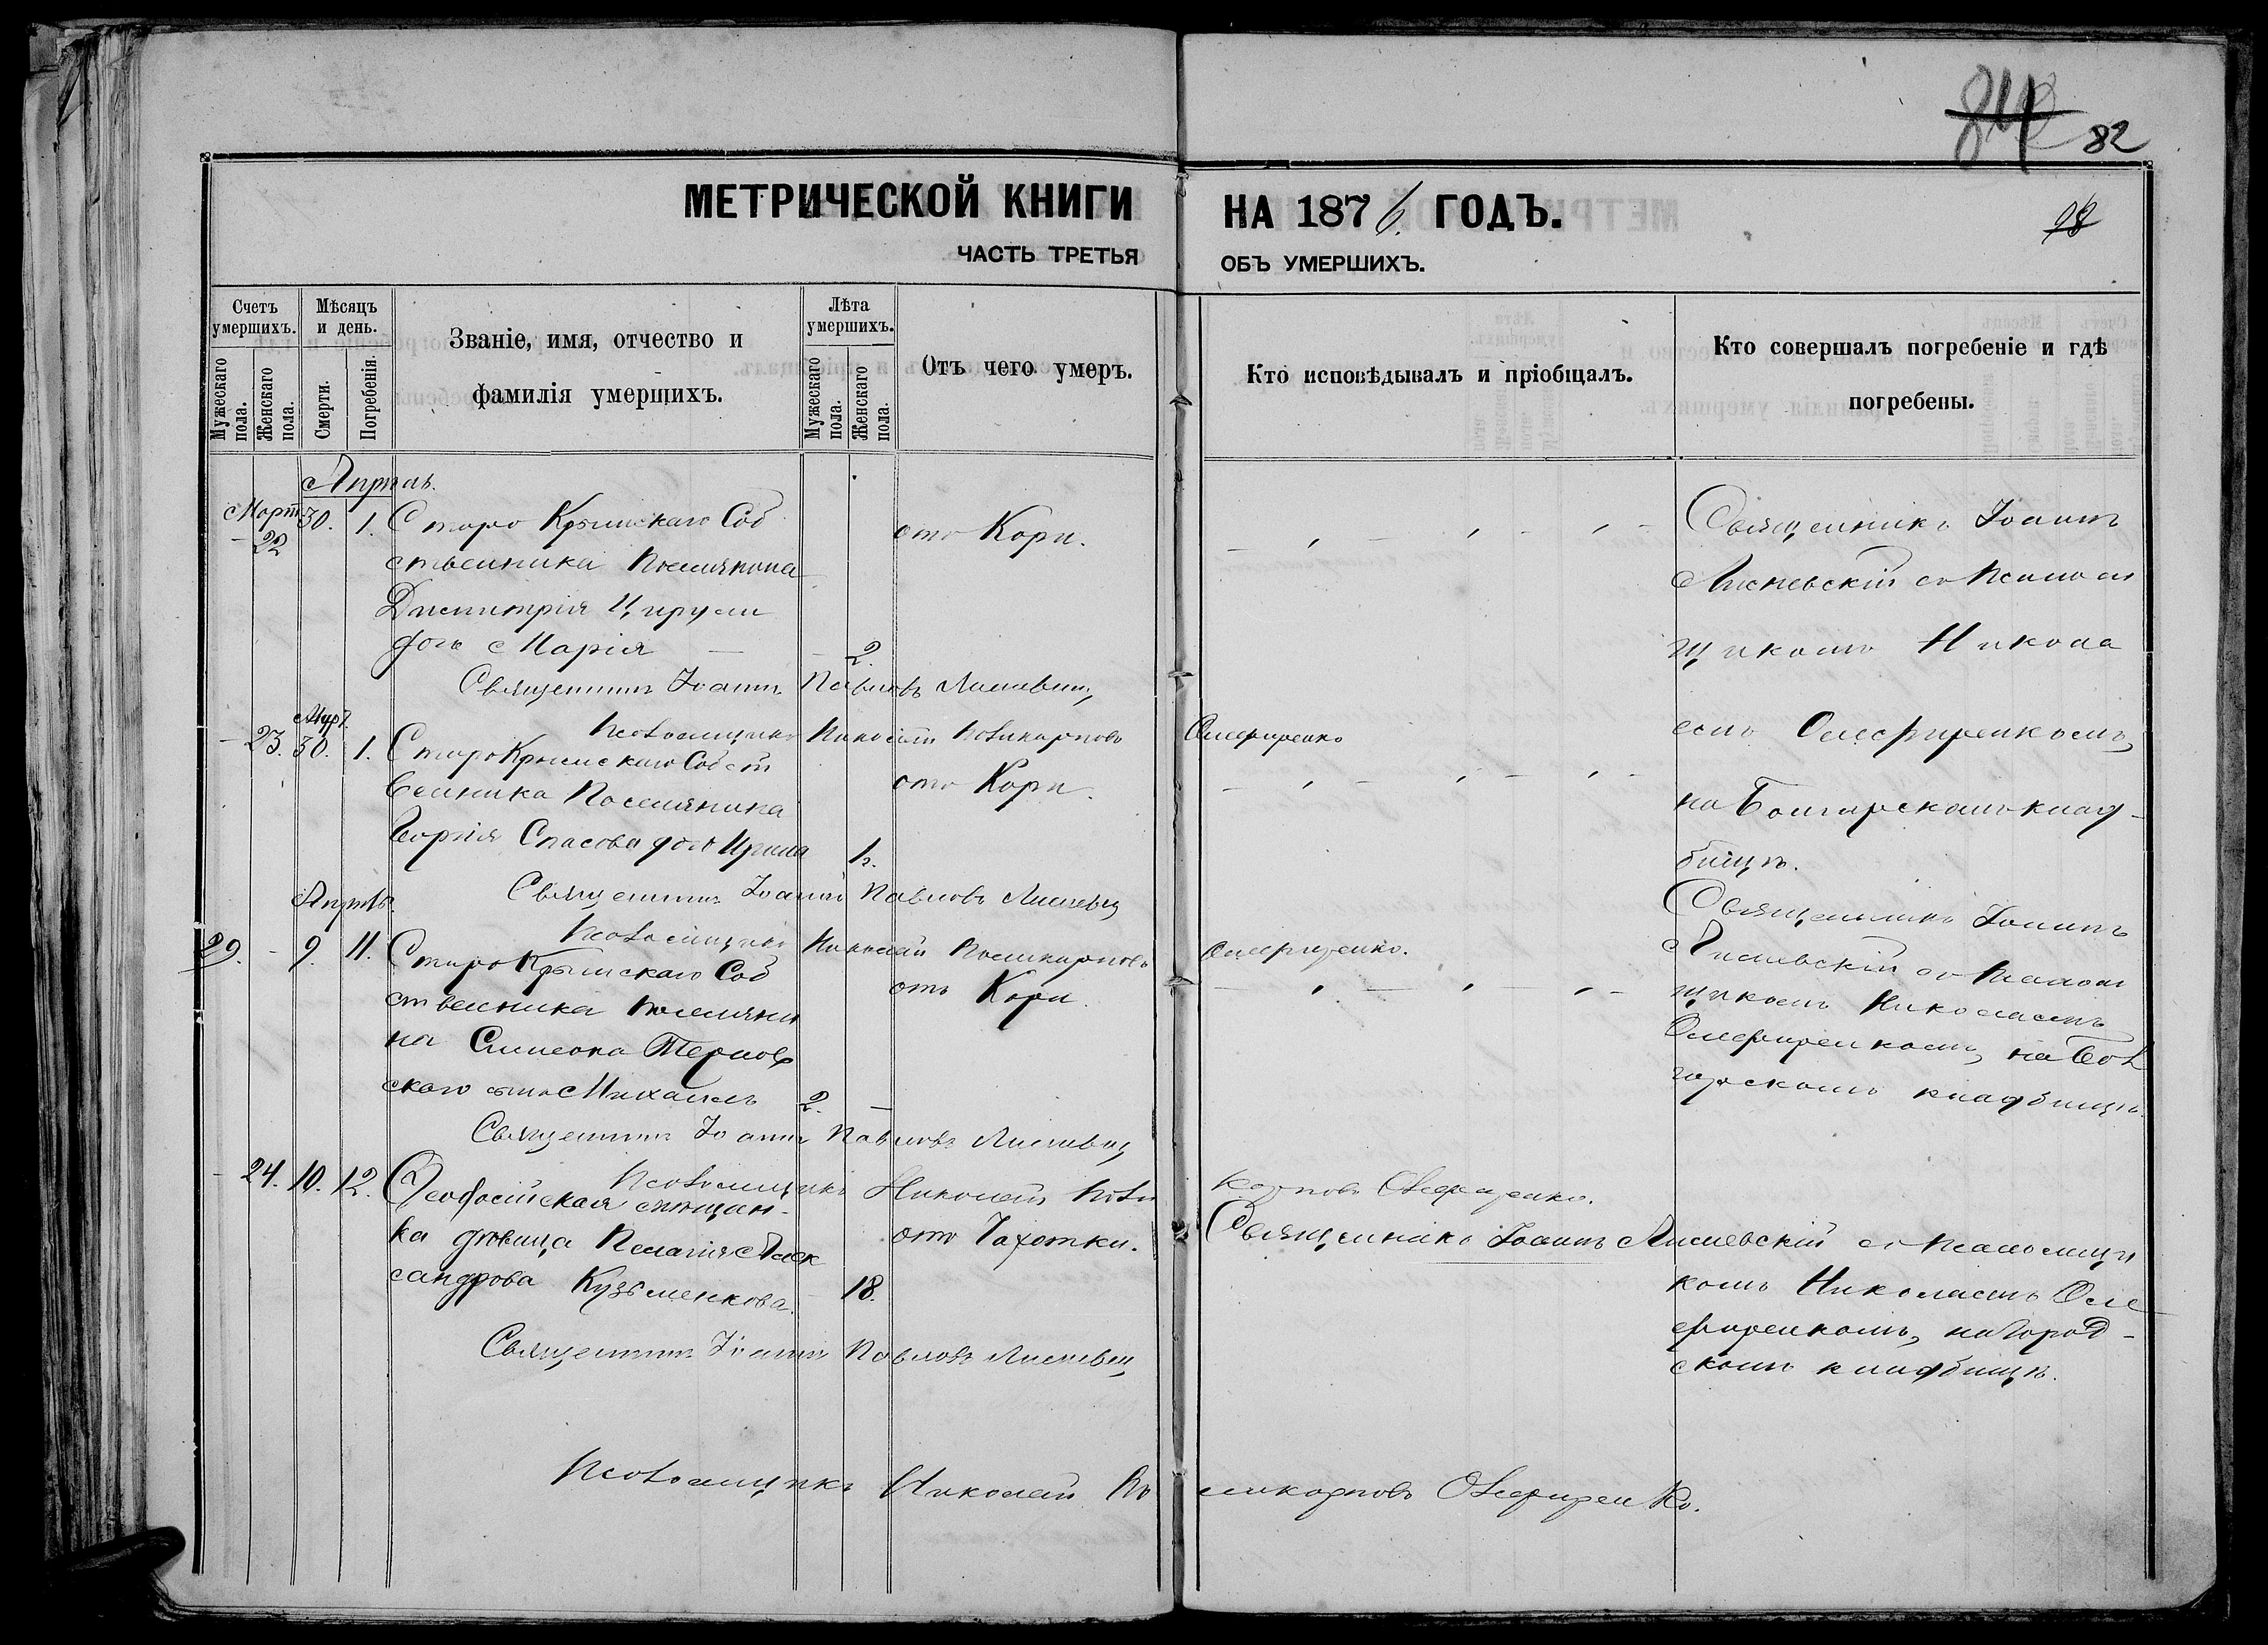 82
МЕТРИЧЕСКОЙ КНИГИ НА 1876. ГОДЪ.
98
ЧАСТЬ ТРЕТЬЯ ОБЪ УМЕРШИХЪ.
Счетъ умершихъ.
Мужескаго пола.
Женскаго пола.
Мѣсяцъ и день.
Смерти.
Погребенія.
Званіе, имя, отчество и
фамилія умершихъ.
Лѣта умершихъ.
Мужескаго пола.
Женскаго пола.
Отъ чего умеръ.
Кто исповѣдывалъ и пріобщалъ.
Кто совершалъ погребеніе и гдѣ
погребены.
Апрѣль.
Март
- 22 30. 1. Старо Крымскаго Соб
ственника Поселянина
Димитрія
дочь Марія — - 2.
отъ Кори.
Священникъ Іоаннъ
Лисневскій съ Псаломъ
щикомъ Никола
емъ Олефиренкомъ,
на Болгарскомъ клад-
бищѣ.
Священникъ Іоаннъ Павловъ Лисневскій
Псаломщикъ Николай Поликарповъ Олефиренко
Март.
- 23. 30. 1. Старо Крымскаго Собст
венника Поселянина
Георгія Спасова дочь Ирина 1.
отъ Кори.
Священникъ Іоаннъ Павловъ Лисневскій
Псаломщикъ Николай Поликарповъ Олефиренко.
Апрѣль.
29. - 9. 11. Старо Крымскаго Соб
ственника Поселяни
на Симеона Тернов
скаго сынъ Михаилъ 2. —
отъ Кори.
Священникъ Іоаннъ
Лисневскій съ Псалом
щикомъ Николаемъ
Олефиренкомъ, на Бол
гарскомъ кладбищѣ.
Священникъ Іоаннъ Павловъ Лисневскій
Псаломщикъ Николай Поли карповъ Олефиренко.
- 24. 10. 12. Ѳеодосійская мѣщан-
ка дѣвица Пелагія Алек
сандрова Кузьменкова. - 18.
отъ Чахотки.
Священникъ Іоаннъ Лисневскій съ Псаломщи
комъ Николаемъ Оле
фиренкомъ, на Город-
скомъ кладбищѣ.
Священникъ Іоаннъ Павловъ Лисневскій
Псаломщикъ Николай По ликарповъ Олефиренко.